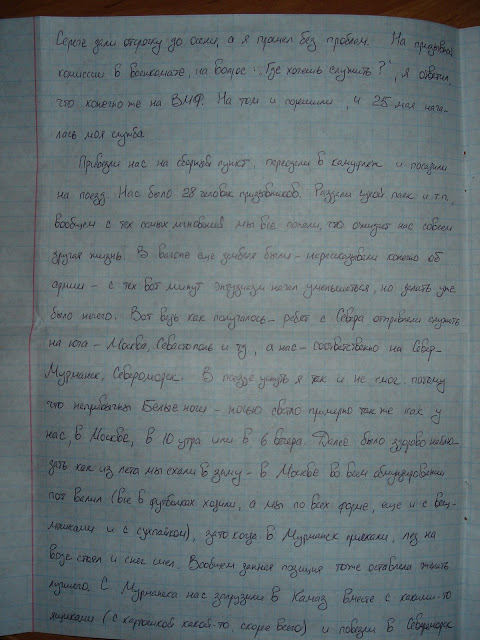 Сереге дали отсрочку до осени, а я прошел без проблем. На призывной
комиссии в военкомате, на вопрос: "Где хочешь служить?", я ответил,
что конечно же на ВМФ. На том и порешили, и 25 мая нача-
лась моя служба.
Привезли нас на сборный пункт, переодели в камуфляж и посадили
на поезд. Нас было 28 человек призывников. Раздали сухой паек и т.п.,
вообщем с тех самых мгновений мы все поняли, что ожидает нас совсем
другая жизнь. В вагоне еще дембеля были - нарассказывали конечно об
армии - с тех вот минут энтузиазм начал уменьшаться, но думать уже
было нечего. Вот ведь как получалось - ребят с Севера отправляли служить
на юга - Москва, Севастополь и тд, а нас - соответственно на Север -
Мурманск, Североморск. В поезде уснуть я так и не смог, потому
что непривычны Белые ночи - ночью светло примерно так же как у
нас, в Москве, в 10 утра или в 6 вечера. Далее было здорово наблю-
дать как из лета мы ехали в зиму - в Москве во всем обмундировании
пот валил (все в футболках ходили, а мы по всей форме, еще и с вещ-
мешками и с сухпайком), зато когда в Мурманск приехали, лед на
воде стоял и снег шел. Вообщем данная позиция тоже оставляла желать
лучшего. С Мурманска нас загрузили в Камаз вместе с какими-то
ящиками (с картошкой какой-то, скорее всего) и повезли в Североморск